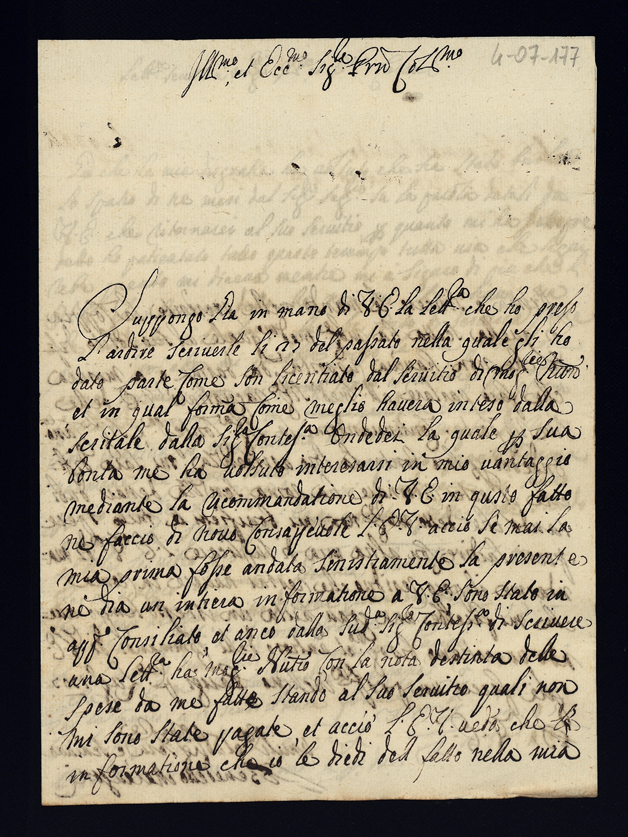 4-07-177
Ill.mo et Ecc.mo Sig.r Prn Col.mo
Suppongo sia in mano di V.E. la lett.a che ho preso
l'ardire scriverle li 27 del passato nella quale gli ho
dato parte come son licentiato dal servitio di
et in qual forma come meglio havera inteso dalla
scritale dalla Sig.ra Contess.a la quale p sua
bonta me ha volsuto interessarsi in mio vantaggio
mediante la racomandatione di V.E. in qusto fatto
ne faccio di novo consapevole L.E.V. acciò se mai la
mia prima fosse andata sinistramente la presente
ne dia un intiera informatione a V.E. sono stato in
app.o consiliato et anco dalla sud.a Sig.ra Contess.a di scrivere
una lett.a ha Nutio con la nota destinta delle
spese da me fatte stando al suo servitio quali non
mi sono state pagate et acciò L.E.V. veda che
informatione che io le diedi del fatto nella mia